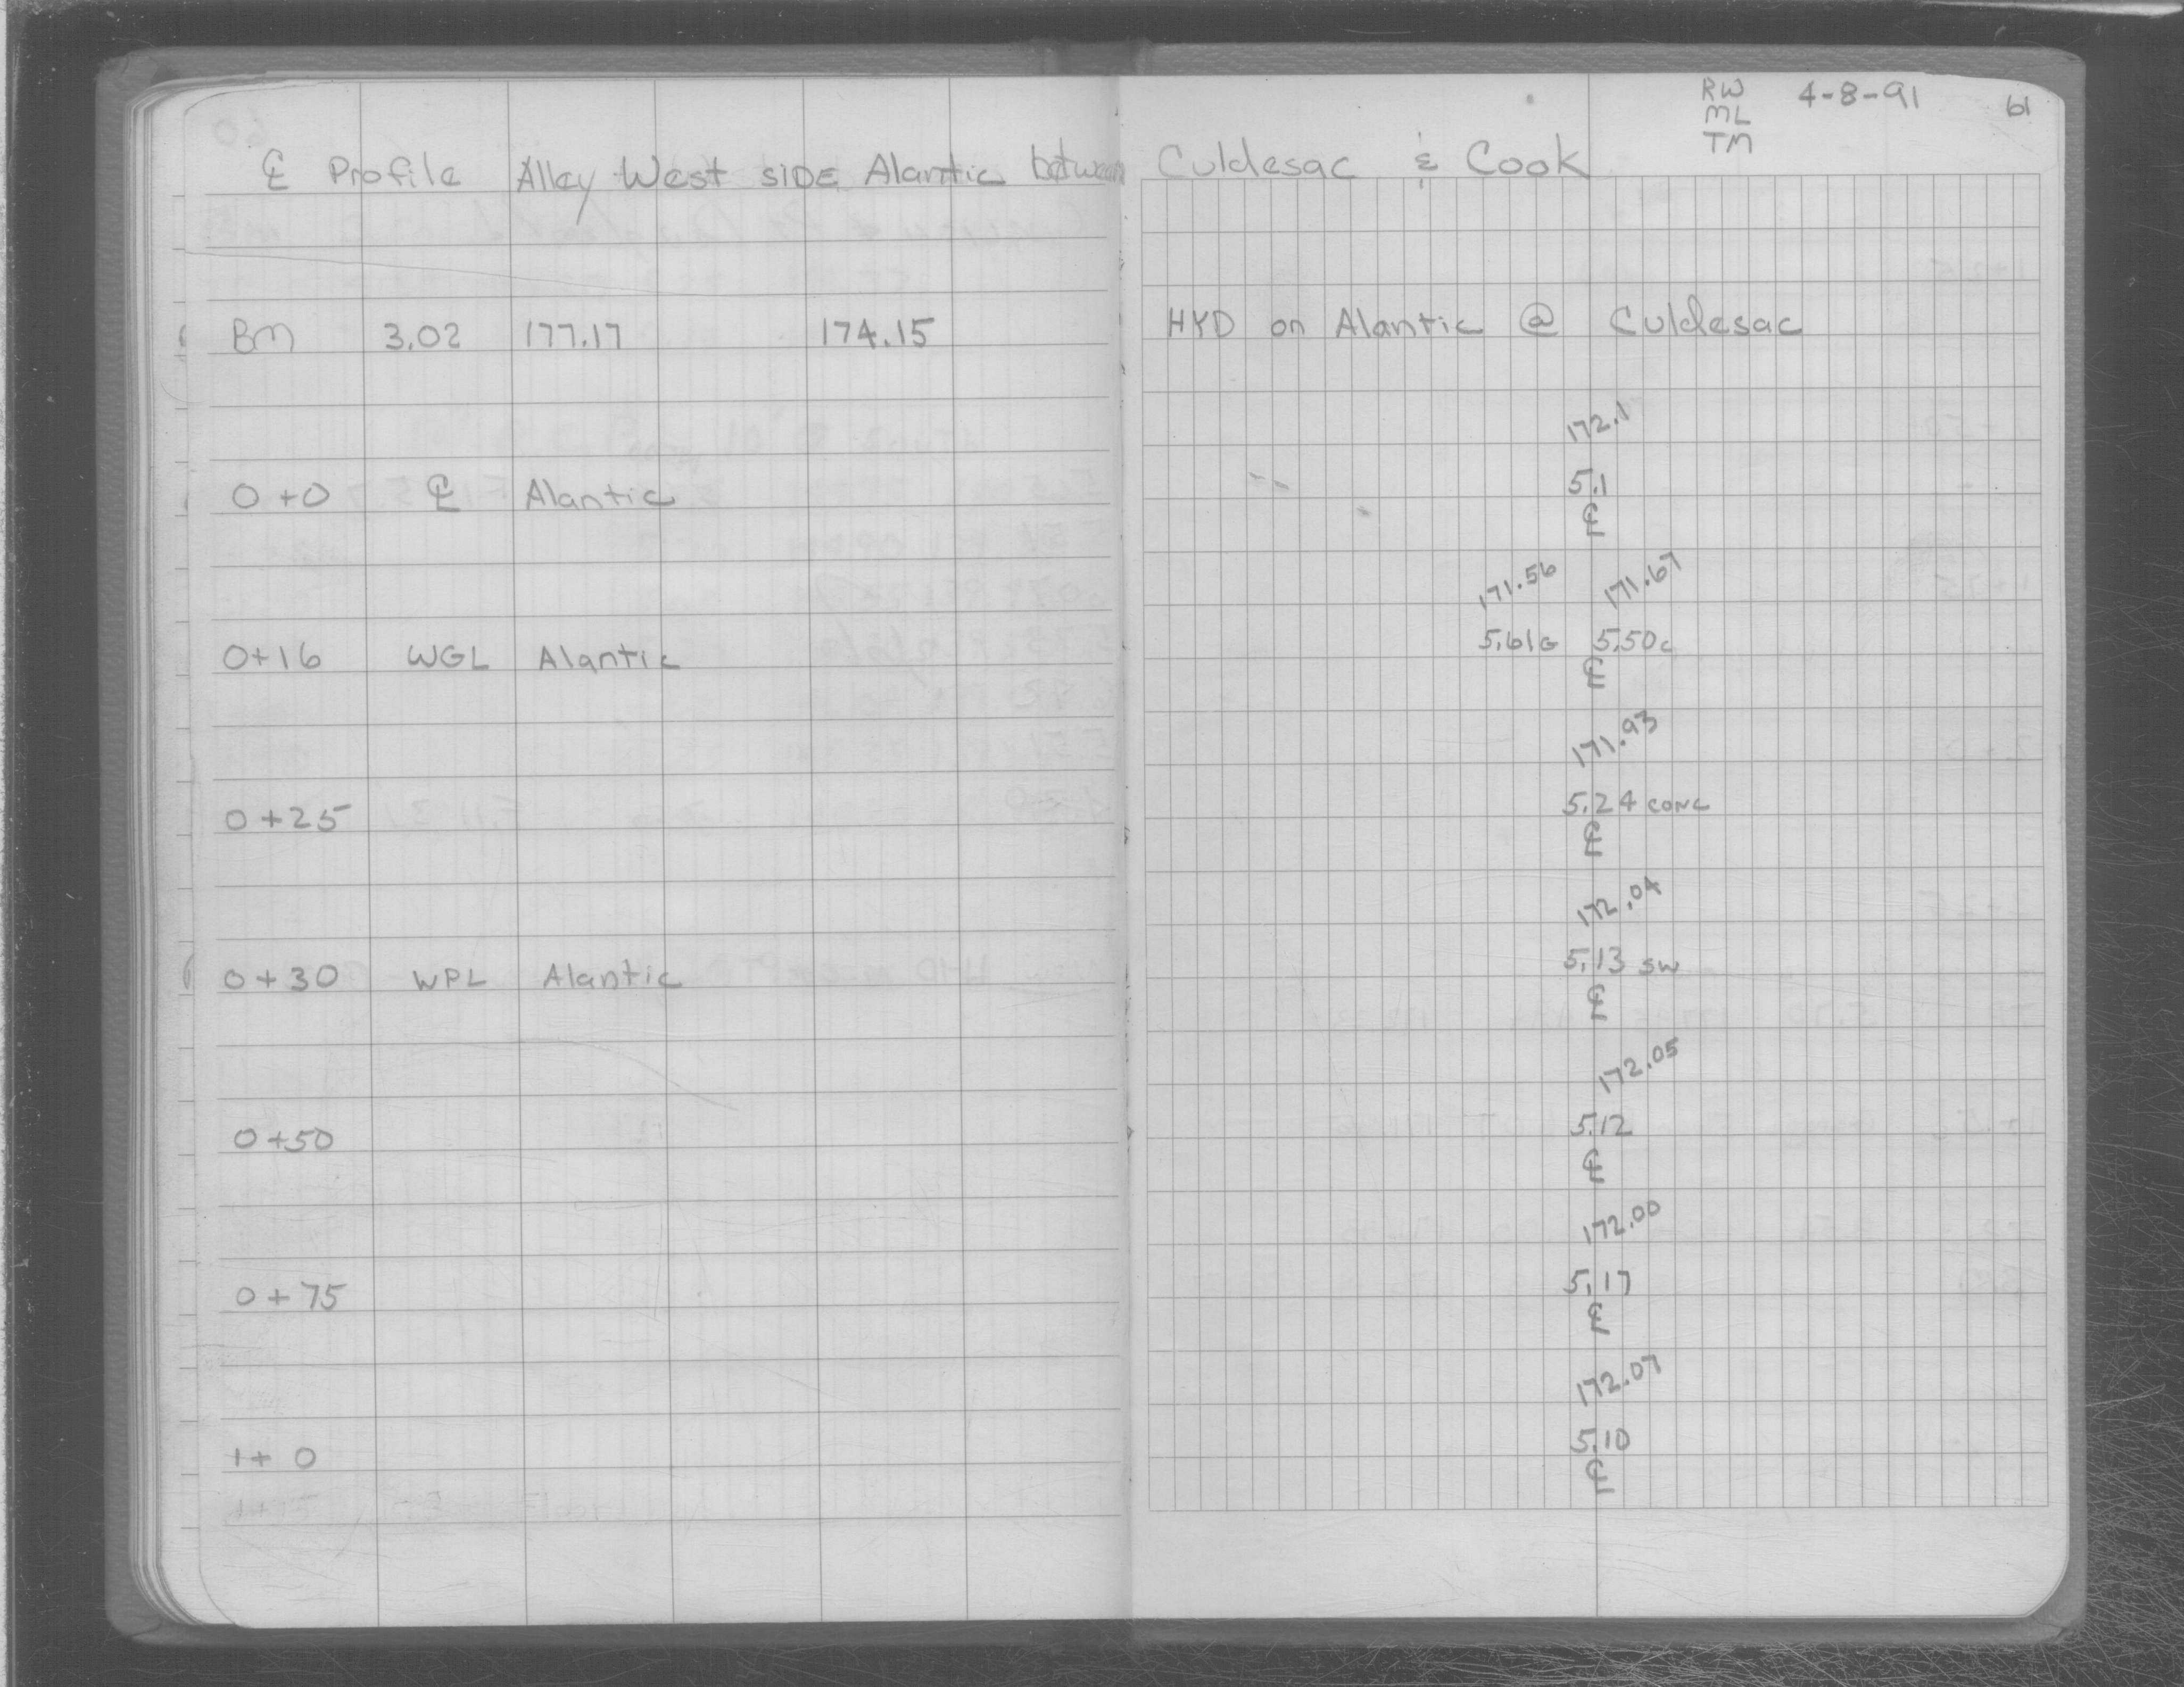 RW 4-8-91 61
ML
TM
℄ Profile Alley West SIDE Alantic between Culdesac & Cook
BM 3.02 177.17 174.15 HYD on Alantic @ Culdesac
172.1
0+0 ℄ Alantic 5.1
℄
171.56 171.67
0+16 WGL Alantic 5.61G 5.50C
℄
171.93
0+25 5.24 CONC
℄
172.04
0+30 WPL Alantic 5.13 SW
℄
172.05
0+50 5.12
℄
172.00
0+75 5.17
℄
172.07
1+0 5.10
℄